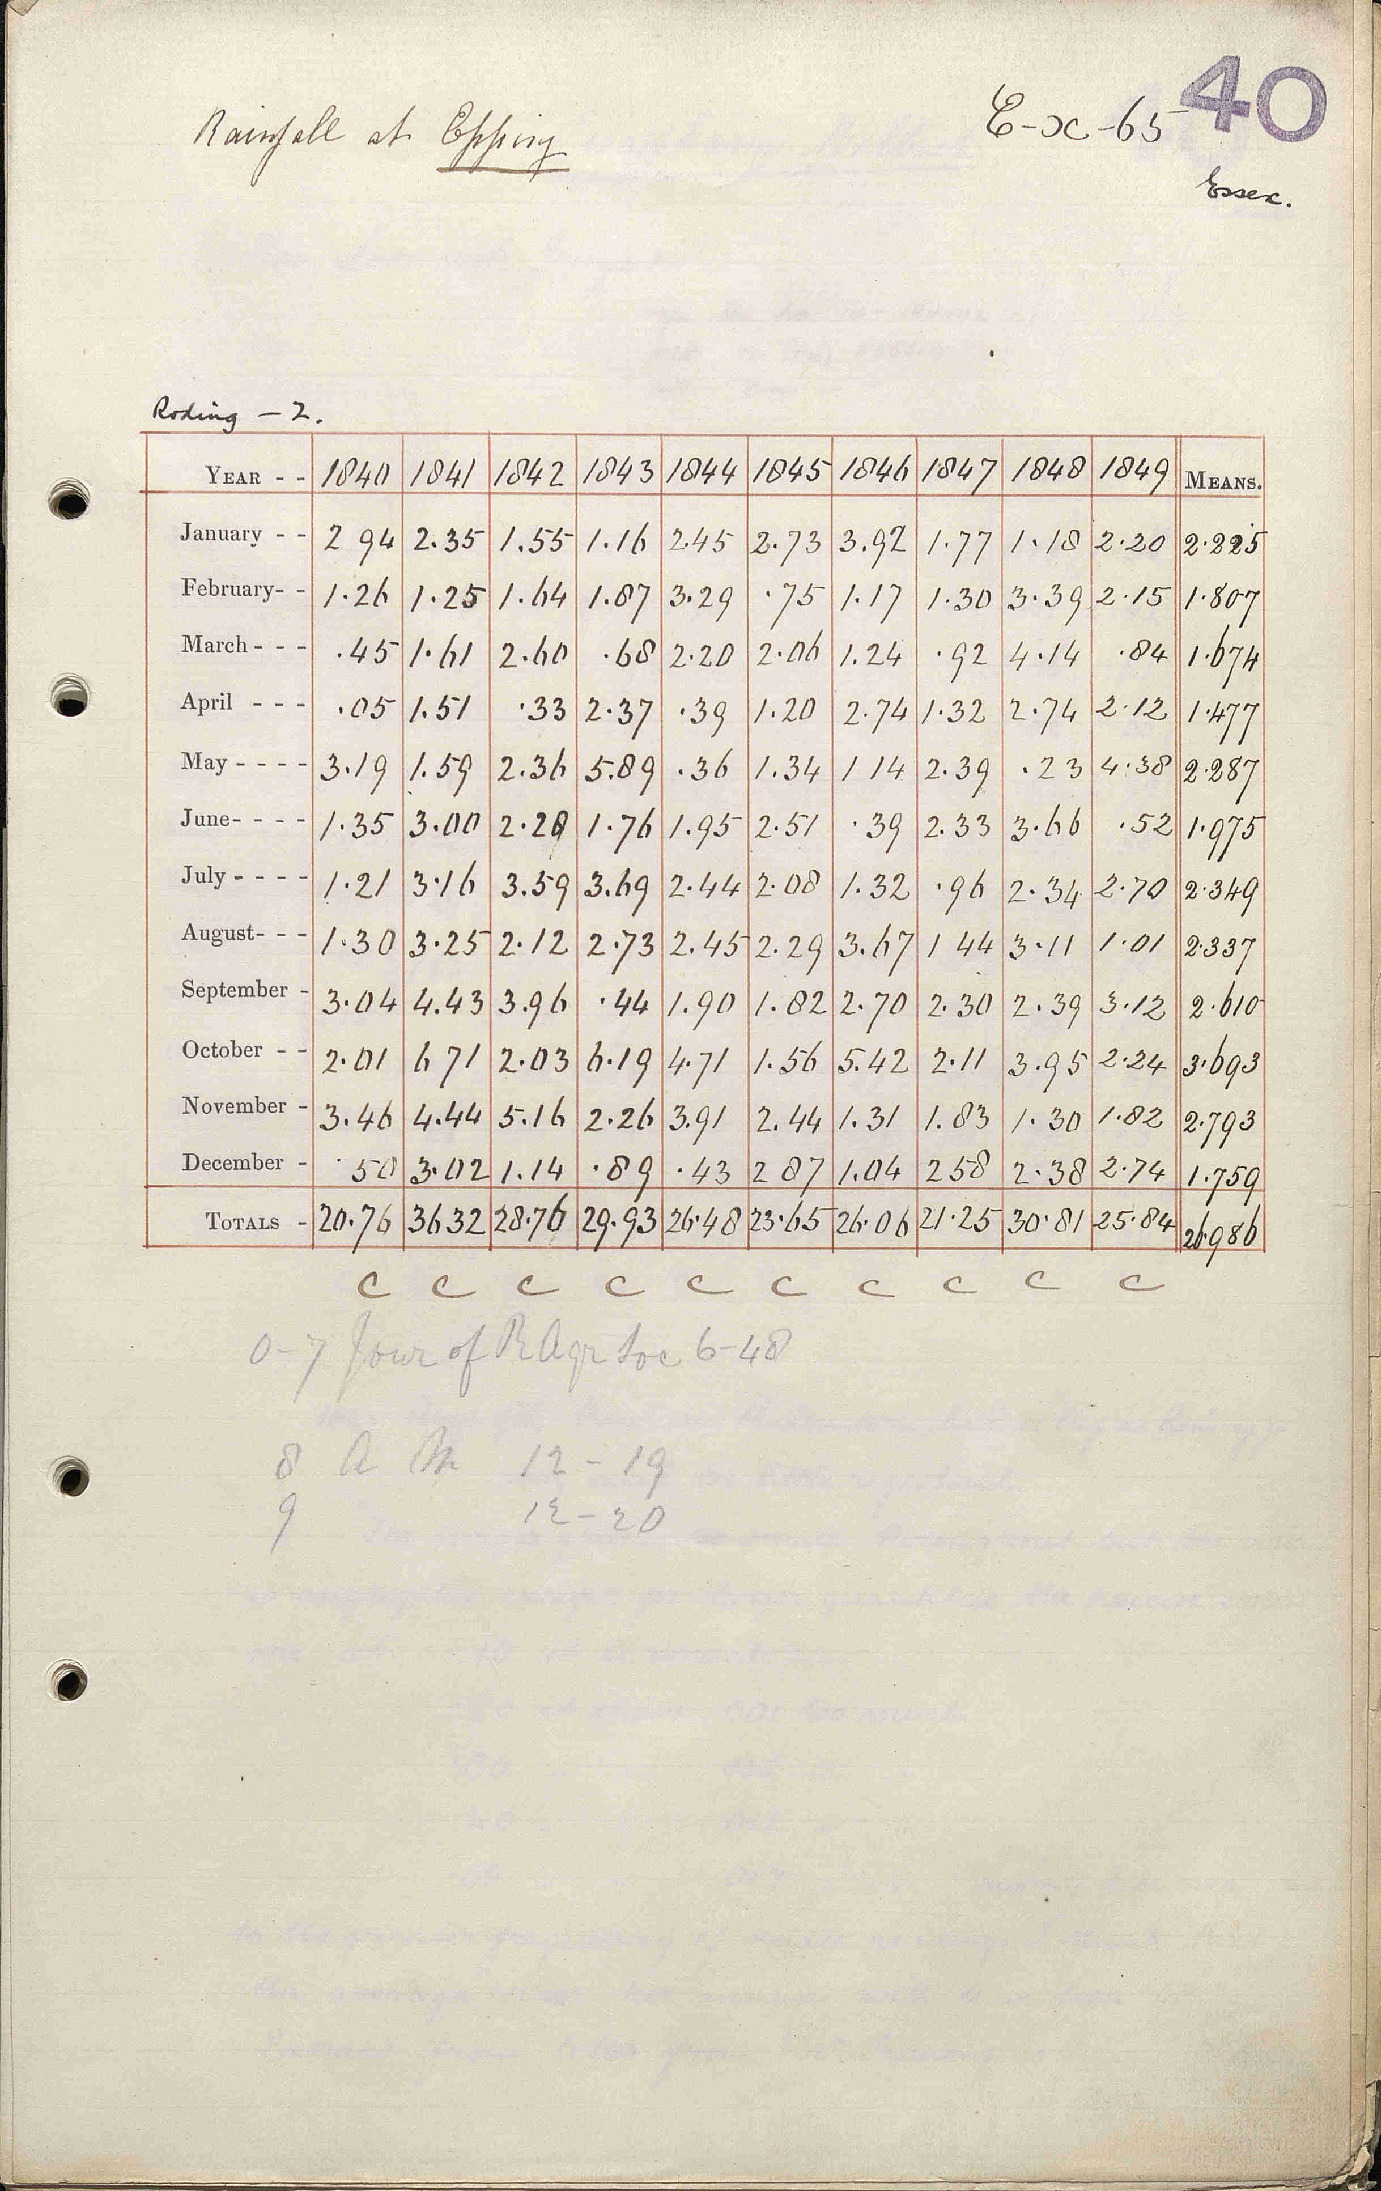 40
Rainfall at Epping
E-x-65
Essex.
Roding - 2.
YEAR - - 1840 1841 1842 1843 1844 1845 1846 1847 1848 1849 MEANS.
January - - 2 94 2.35 1.55 1.16 2.45 2.73 3.92 1.77 1.18 2.20 2.225
February- - 1.26 1.25 1.64 1.87 3.29 .75 1.17 1.30 3.39 2.15 1.807
March - - - .45 1.61 2.60 .68 2.20 2.06 1.24 .92 4.14 .84 1.674
April - - - .05 1.51 .33 2.37 .39 1.20 2.74 1.32 2.74 2.12 1.477
May - - - - 3.19 1.59 2.36 5.89 .36 1.34 1 14 2.39 .23 4.38 2.287
June- - - - 1.35 3.00 2.28 1.76 1.95 2.51 .39 2.33 3.66 .52 1.975
July - - - - 1.21 3.16 3.59 3.69 2.44 2.08 1.32 .96 2.34 2.70 2.349
August- - - 1.30 3.25 2.12 2.73 2.45 2.29 3.67 1 44 3.11 1.01 2.337
September - 3.04 4.43 3.96 .44 1.90 1.82 2.70 2.30 2.39 3.12 2.610
October - - 2.01 6 71 2.03 6.19 4.71 1.56 5.42 2.11 3.95 2.24 3.693
November - 3.46 4.44 5.16 2.26 3.91 2.44 1.31 1.83 1.30 1.82 2.793
December - .50 3.02 1.14 .89 .43 2 87 1.04 2 58 2.38 2.74 1.759
TOTALS - 20.76 36 32 28.76 29.93 26.48 23.65 26.06 21.25 30.81 25.84 26.986
C C C C C C C C C C
0-7 Jour of R Agr Soc 6-48
8 A M 12-19
9 12-20